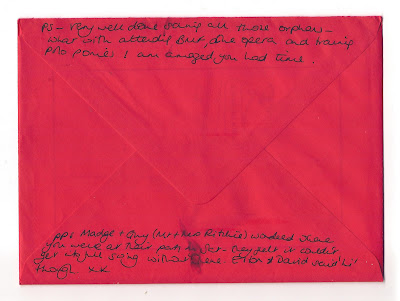 PS - Very well done saving all those orphans -
what with attending Burt, the opera and training
Polo ponies I am amazed you had time.
PPS Madge + Guy (Mr + Mrs Ritchie) wondered where
you were at their party on Sat - they felt it couldn't
get into full swing without you Elton + David said 'hi'
though xx